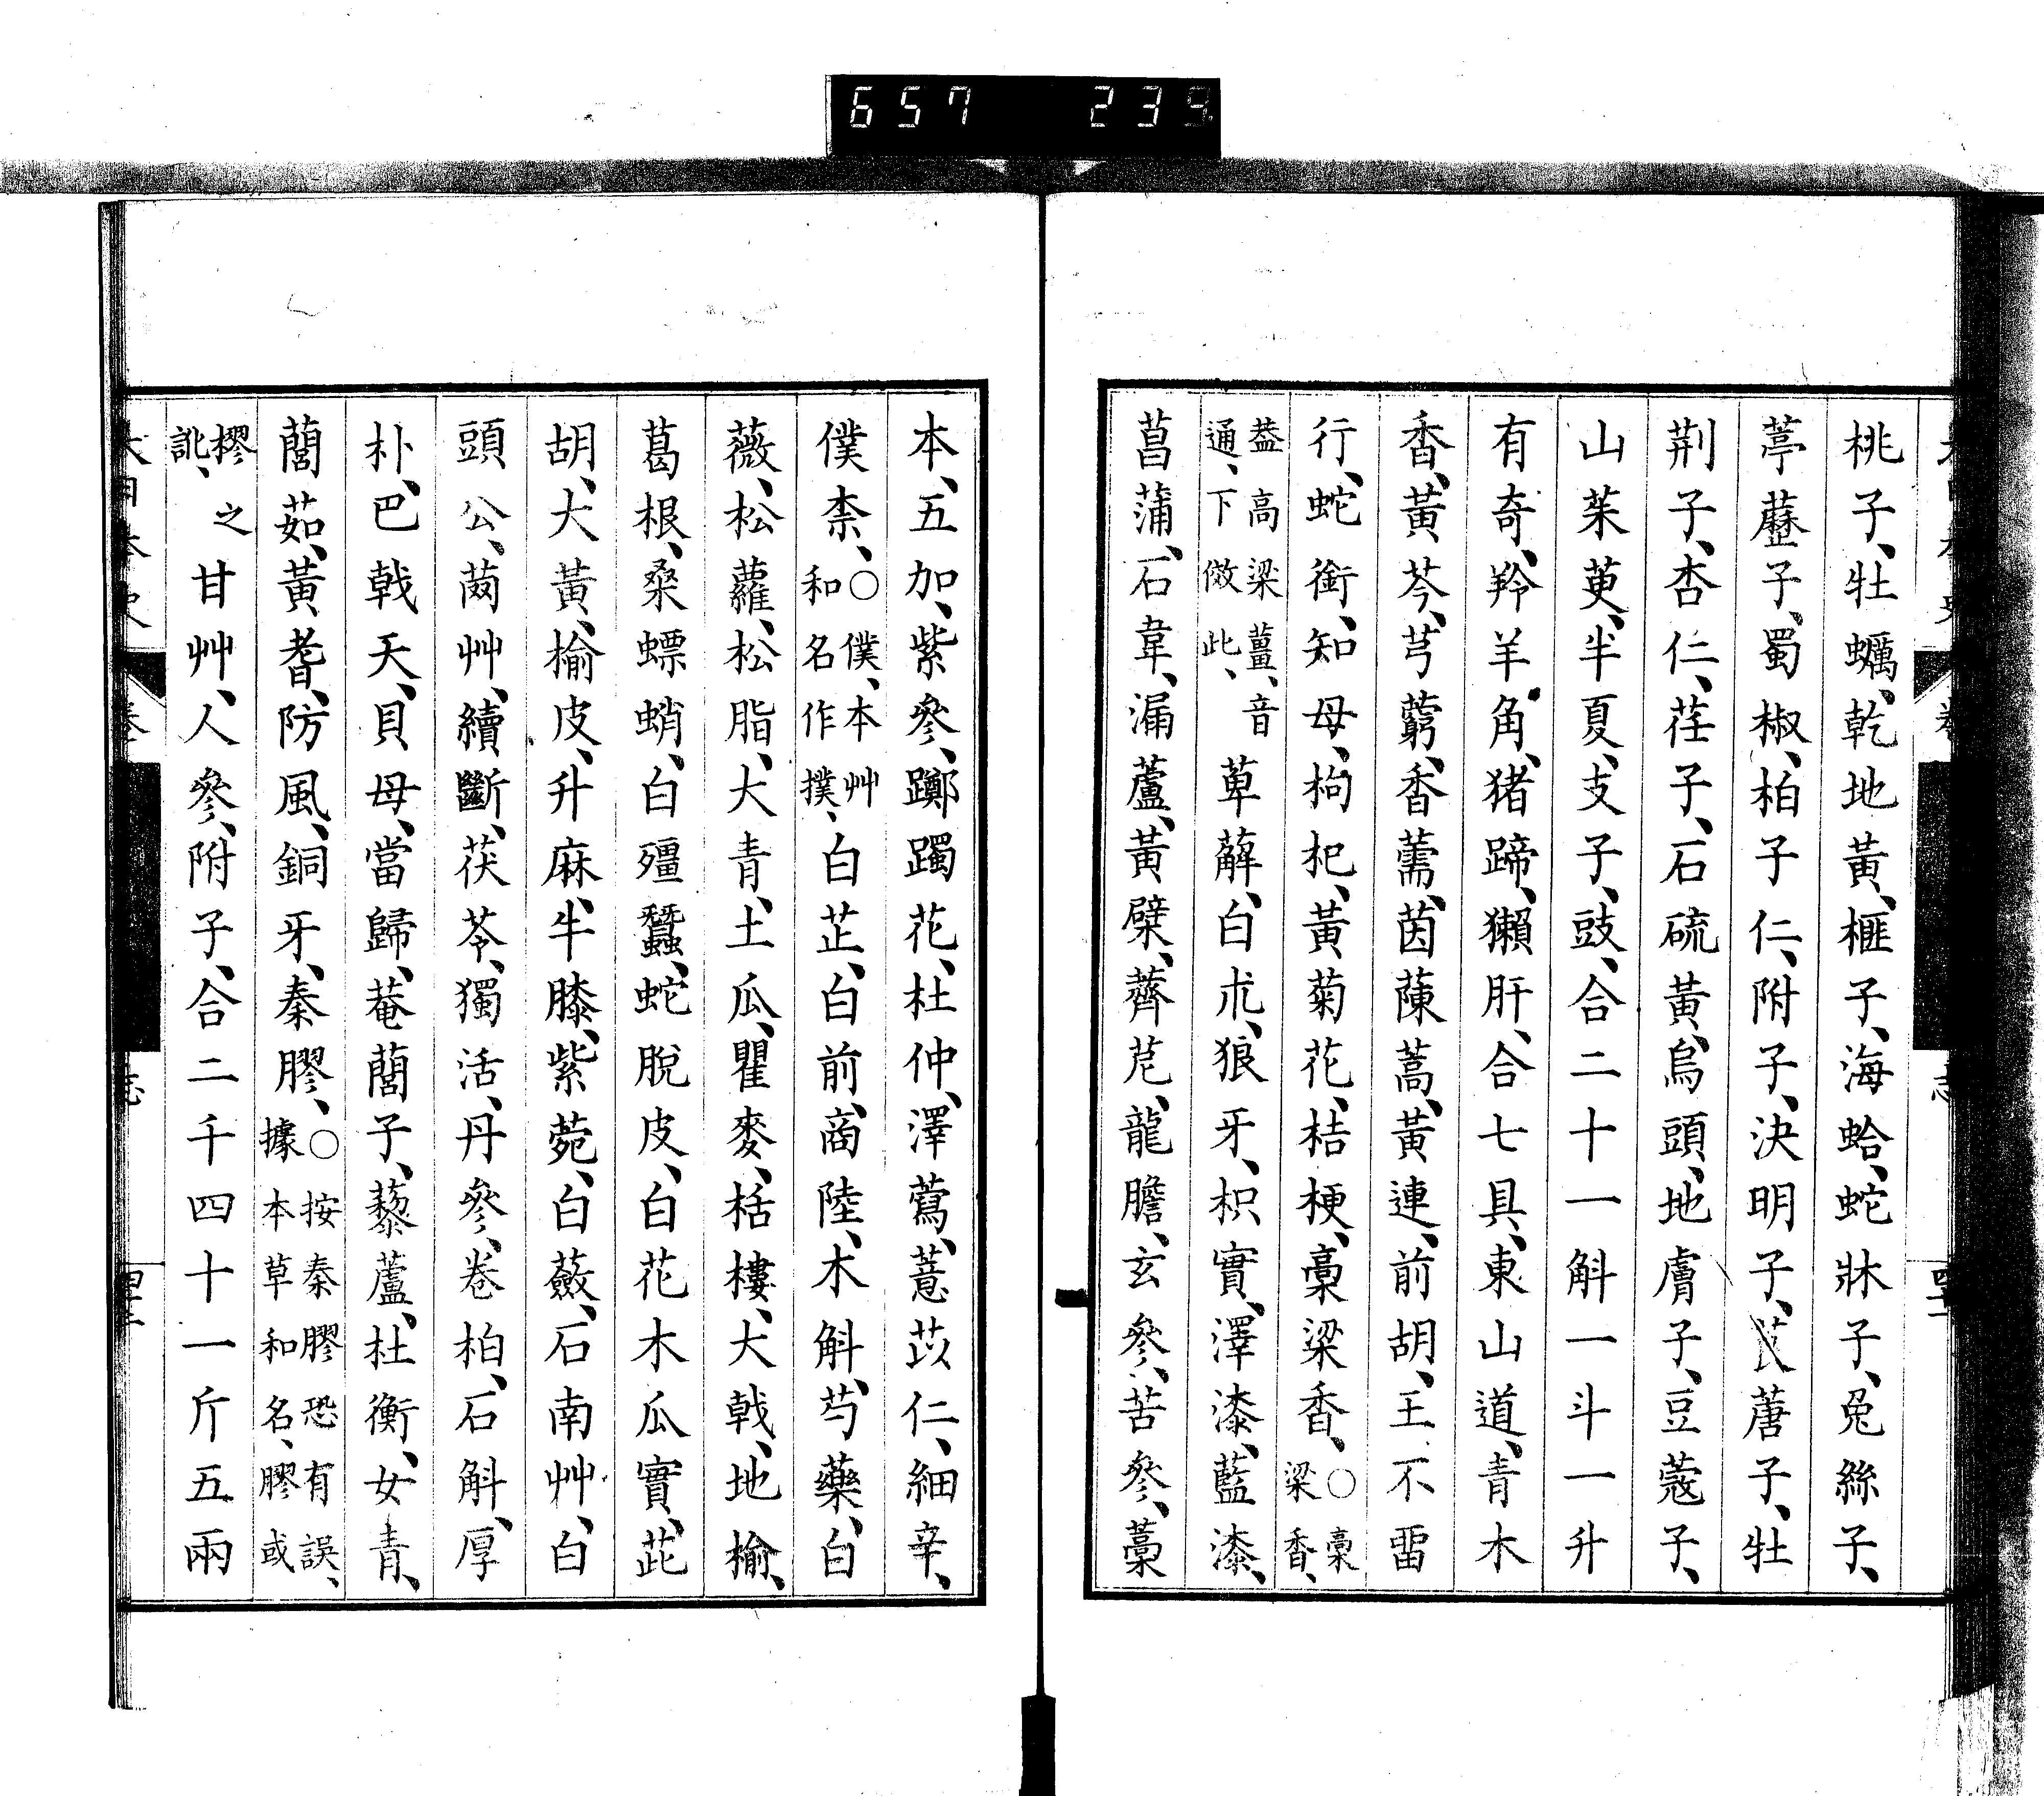 657 239
桃子、牡蠣、乾地黃、榧子、海蛤、蛇牀子、兔絲子、
葶藶子、蜀椒、柏子仁、附子、決明子、莨蓎子、牡
荆子、杏仁、荏子、石硫黃、烏頭、地膚子、豆蔻子、
山茱萸、半夏、支子、豉、合二十一斛一斗一升
有奇、羚羊角、猪蹄、獺肝、合七具、東山道、青木
香、黃芩、芎藭、香薷、茵蔯蒿、黃連、前胡、王不畱
行、蛇銜、知母、枸杞、黃菊花、桔梗、稾梁香、○稾梁香、
葢高梁薑、音通、下傚此、萆薢、白朮、狼牙、枳實、澤漆、藍漆、
菖蒲、石韋、漏蘆、黃檗、薺苨、龍膽、玄參、苦參、藁
本、五加、紫參、躑躅花、杜仲、澤蔿、薏苡仁、細辛、
僕柰、○僕、本艸和名作撲、白芷、白前、商陸、木斛、芍藥、白
薇、松蘿、松脂、大青、土瓜、瞿麥、栝樓、大戟、地榆、
葛根、桑螵蛸、白殭蠶、蛇脫皮、白花木瓜實、茈
胡、大黃、榆皮、升麻、牛膝、紫菀、白蘞、石南艸、白
頭公、茵艸、續斷、茯苓、獨活、丹參、卷柏、石斛、厚
朴、巴戟天、貝母、當歸、菴䕡子、藜蘆、杜衡、女青、
䕡茹、黃耆、防風、銅牙、秦膠、○按秦膠恐有誤、據本草和名、膠或
樛之訛、甘艸、人參、附子、合二千四十一斤五兩